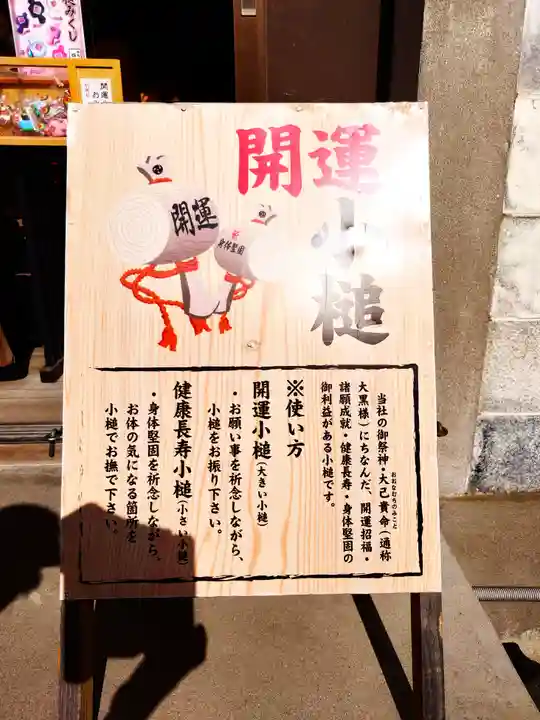 みくじ
開運
開運
小槌
開運
身体堅固
当社の御祭神・大己貴命（通称
おおなむちのみこと
大黒様）にちなんだ、開運招福・
諸願成就・健康長寿・身体堅固の
御利益がある小槌です。
※使い方
開運小槌（大きい小槌）
・お願い事を祈念しながら、
小槌をお振り下さい。
健康長寿小槌（小さい小槌）
・身体堅固を祈念しながら、
お体の気になる箇所を
小槌でお撫で下さい。